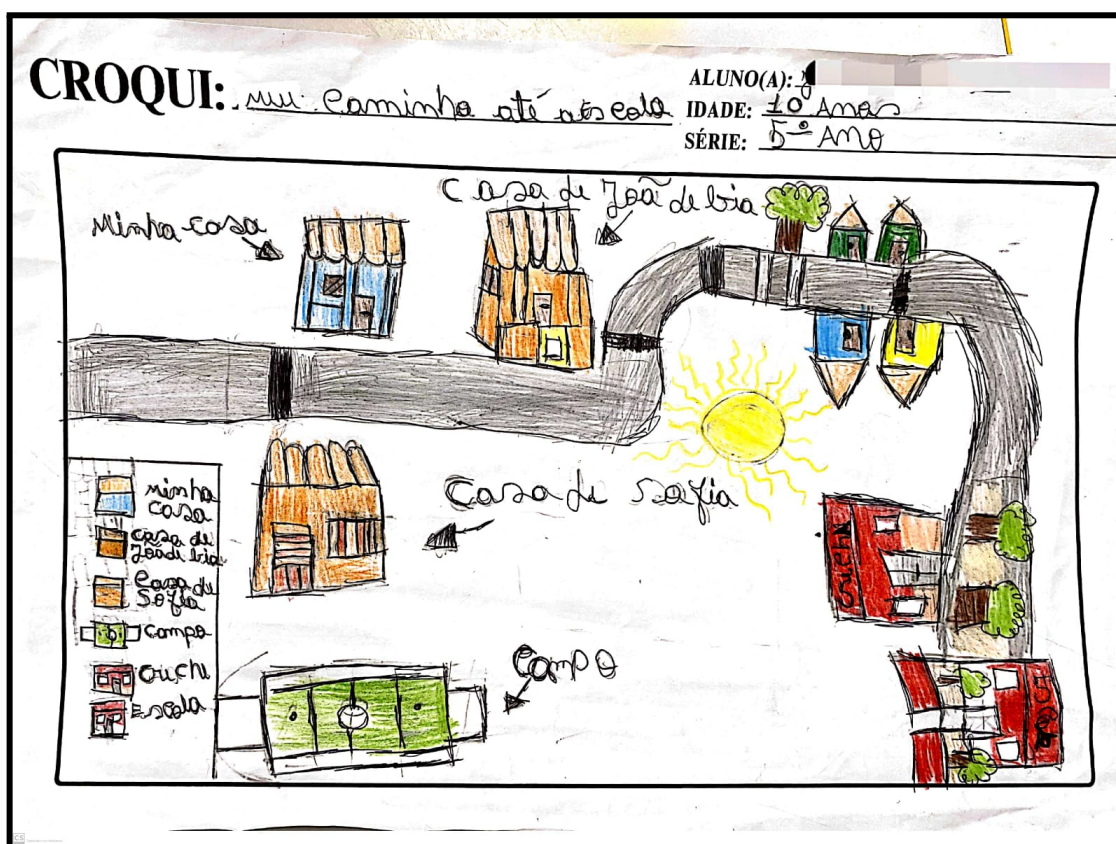 CROQUI: meu Caminho até aescola
ALUNO(A):
IDADE: 10 Anos
SÉRIE: 5º ANO
Minha casa
Casa de Joã de bia
Casa de Sofia
Campo
minha
casa
casa de
Joãde bia
Casa de
Sofia
campo
Crichi
Escola